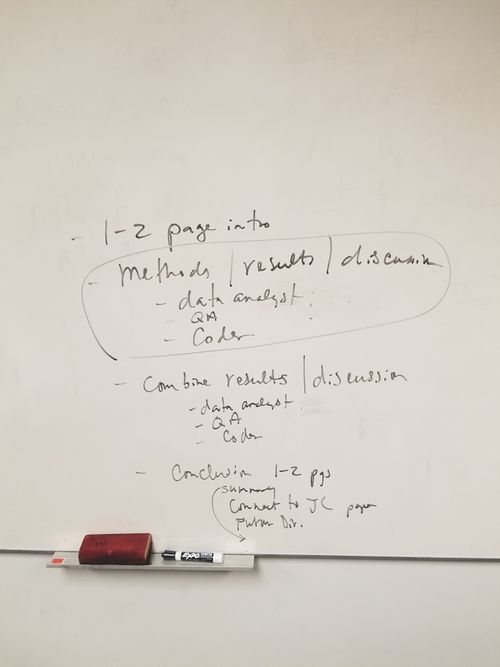 - 1-2 page intro
- Methods | results | discussion
- data analyst
- QA
- Coder
- Combine results | discussion
- data analyst
- QA
- Coder
- Conclusion 1-2 pgs
summary
Connect to JC paper
Future Dir.
EXPO